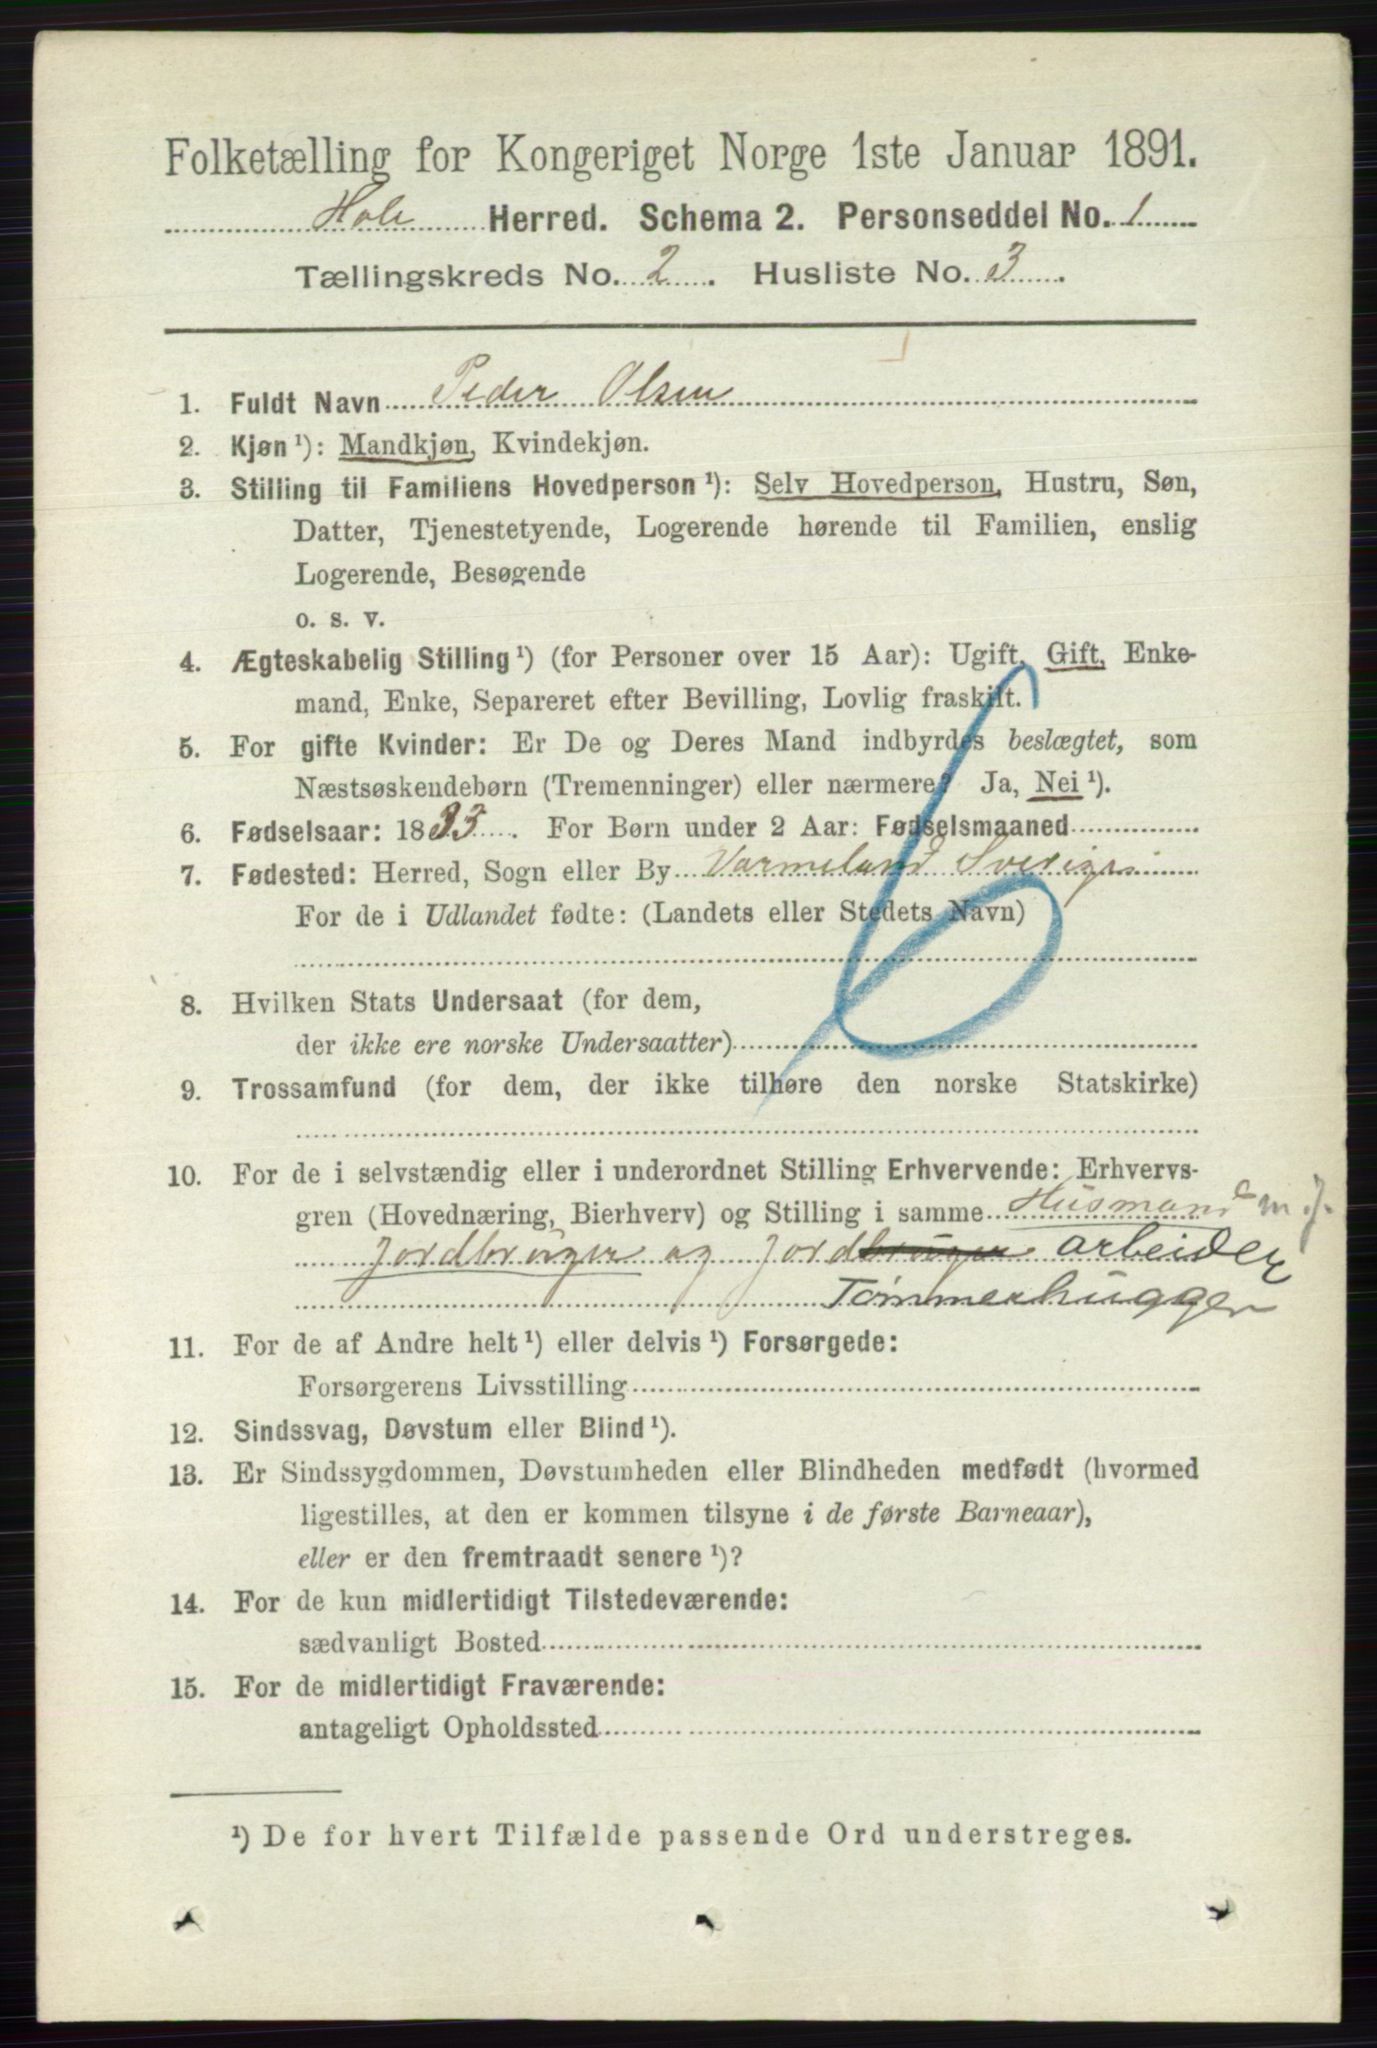 Folketælling for Kongeriget Norge 1ste Januar 1891.
Hole Herred. Schema 2. Personseddel No. 1
Tællingskreds No. 2. Husliste No. 3.
1. Fuldt Navn Peder Olsen
2. Kjøn ¹): Mandkjøn, Kvindekjøn.
3. Stilling til Familiens Hovedperson ¹): Selv Hovedperson, Hustru, Søn,
Datter, Tjenestetyende, Logerende hørende til Familien, enslig
Logerende, Besøgende
o. s. v.
4. Ægteskabelig Stilling ¹) (for Personer over 15 Aar): Ugift, Gift, Enke-
mand, Enke, Separeret efter Bevilling, Lovlig fraskilt.
5. For gifte Kvinder: Er De og Deres Mand indbyrdes beslægtet, som
Næstsøskendebørn (Tremenninger) eller nærmere? Ja, Nei ¹).
6. Fødselsaar: 1833. For Børn under 2 Aar: Fødselsmaaned
7. Fødested: Herred, Sogn eller By Varmeland Sverige
For de i Udlandet fødte: (Landets eller Stedets Navn)
8. Hvilken Stats Undersaat (for dem,
der ikke ere norske Undersaatter)
9. Trossamfund (for dem, der ikke tilhøre den norske Statskirke)
10. For de i selvstændig eller i underordnet Stilling Erhvervende: Erhvervs-
gren (Hovednæring, Bierhverv) og Stilling i samme Husmand m. J.
Jordbruger og Jordbruger arbeider
Tømmerhugger
11. For de af Andre helt ¹) eller delvis ¹) Forsørgede:
Forsørgerens Livsstilling
12. Sindssvag, Døvstum eller Blind ¹).
13. Er Sindssygdommen, Døvstumheden eller Blindheden medfødt (hvormed
ligestilles, at den er kommen tilsyne i de første Barneaar),
eller er den fremtraadt senere ¹)?
14. For de kun midlertidigt Tilstedeværende:
sædvanligt Bosted
15. For de midlertidigt Fraværende:
antageligt Opholdssted
¹) De for hvert Tilfælde passende Ord understreges.